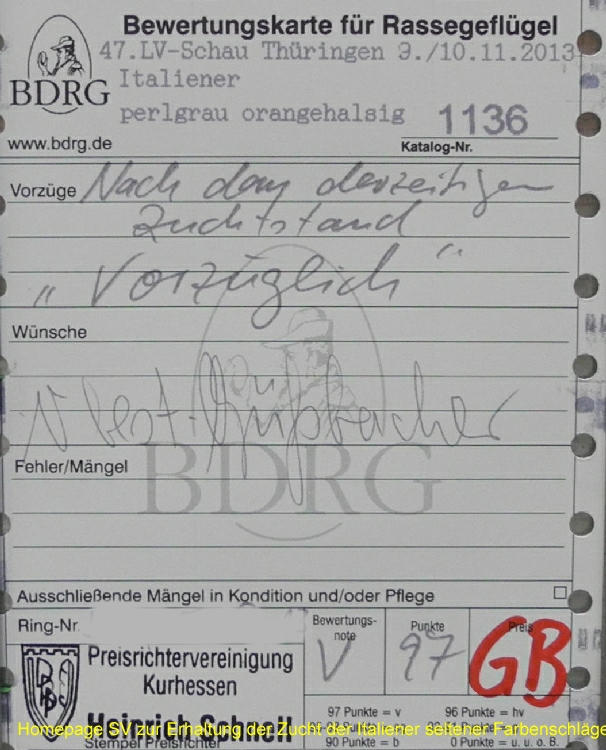 Bewertungskarte für Rassegeflügel
47.LV-Schau Thüringen 9./10.11.2013
Italiener
perlgrau orangehalsig 1136
BDRG
www.bdrg.de
Katalog-Nr.
Vorzüge Nach dem derzeitigen
Zuchtstand
"Vorzüglich"
Wünsche
Fehler/Mängel
BDRG
Ausschließende Mängel in Kondition und/oder Pflege
Ring-Nr.
Bewertungs-
note
Punkte
Preis
V 97 GB
Preisrichtervereinigung
Kurhessen
Heinrich Schnell
Stempel Preisrichter
97 Punkte = v 96 Punkte = hv
90 Punkte = b 0 Punkte = u. u. o. B.
Homepage SV zur Erhaltung der Zucht der Italiener seltener Farbenschläge